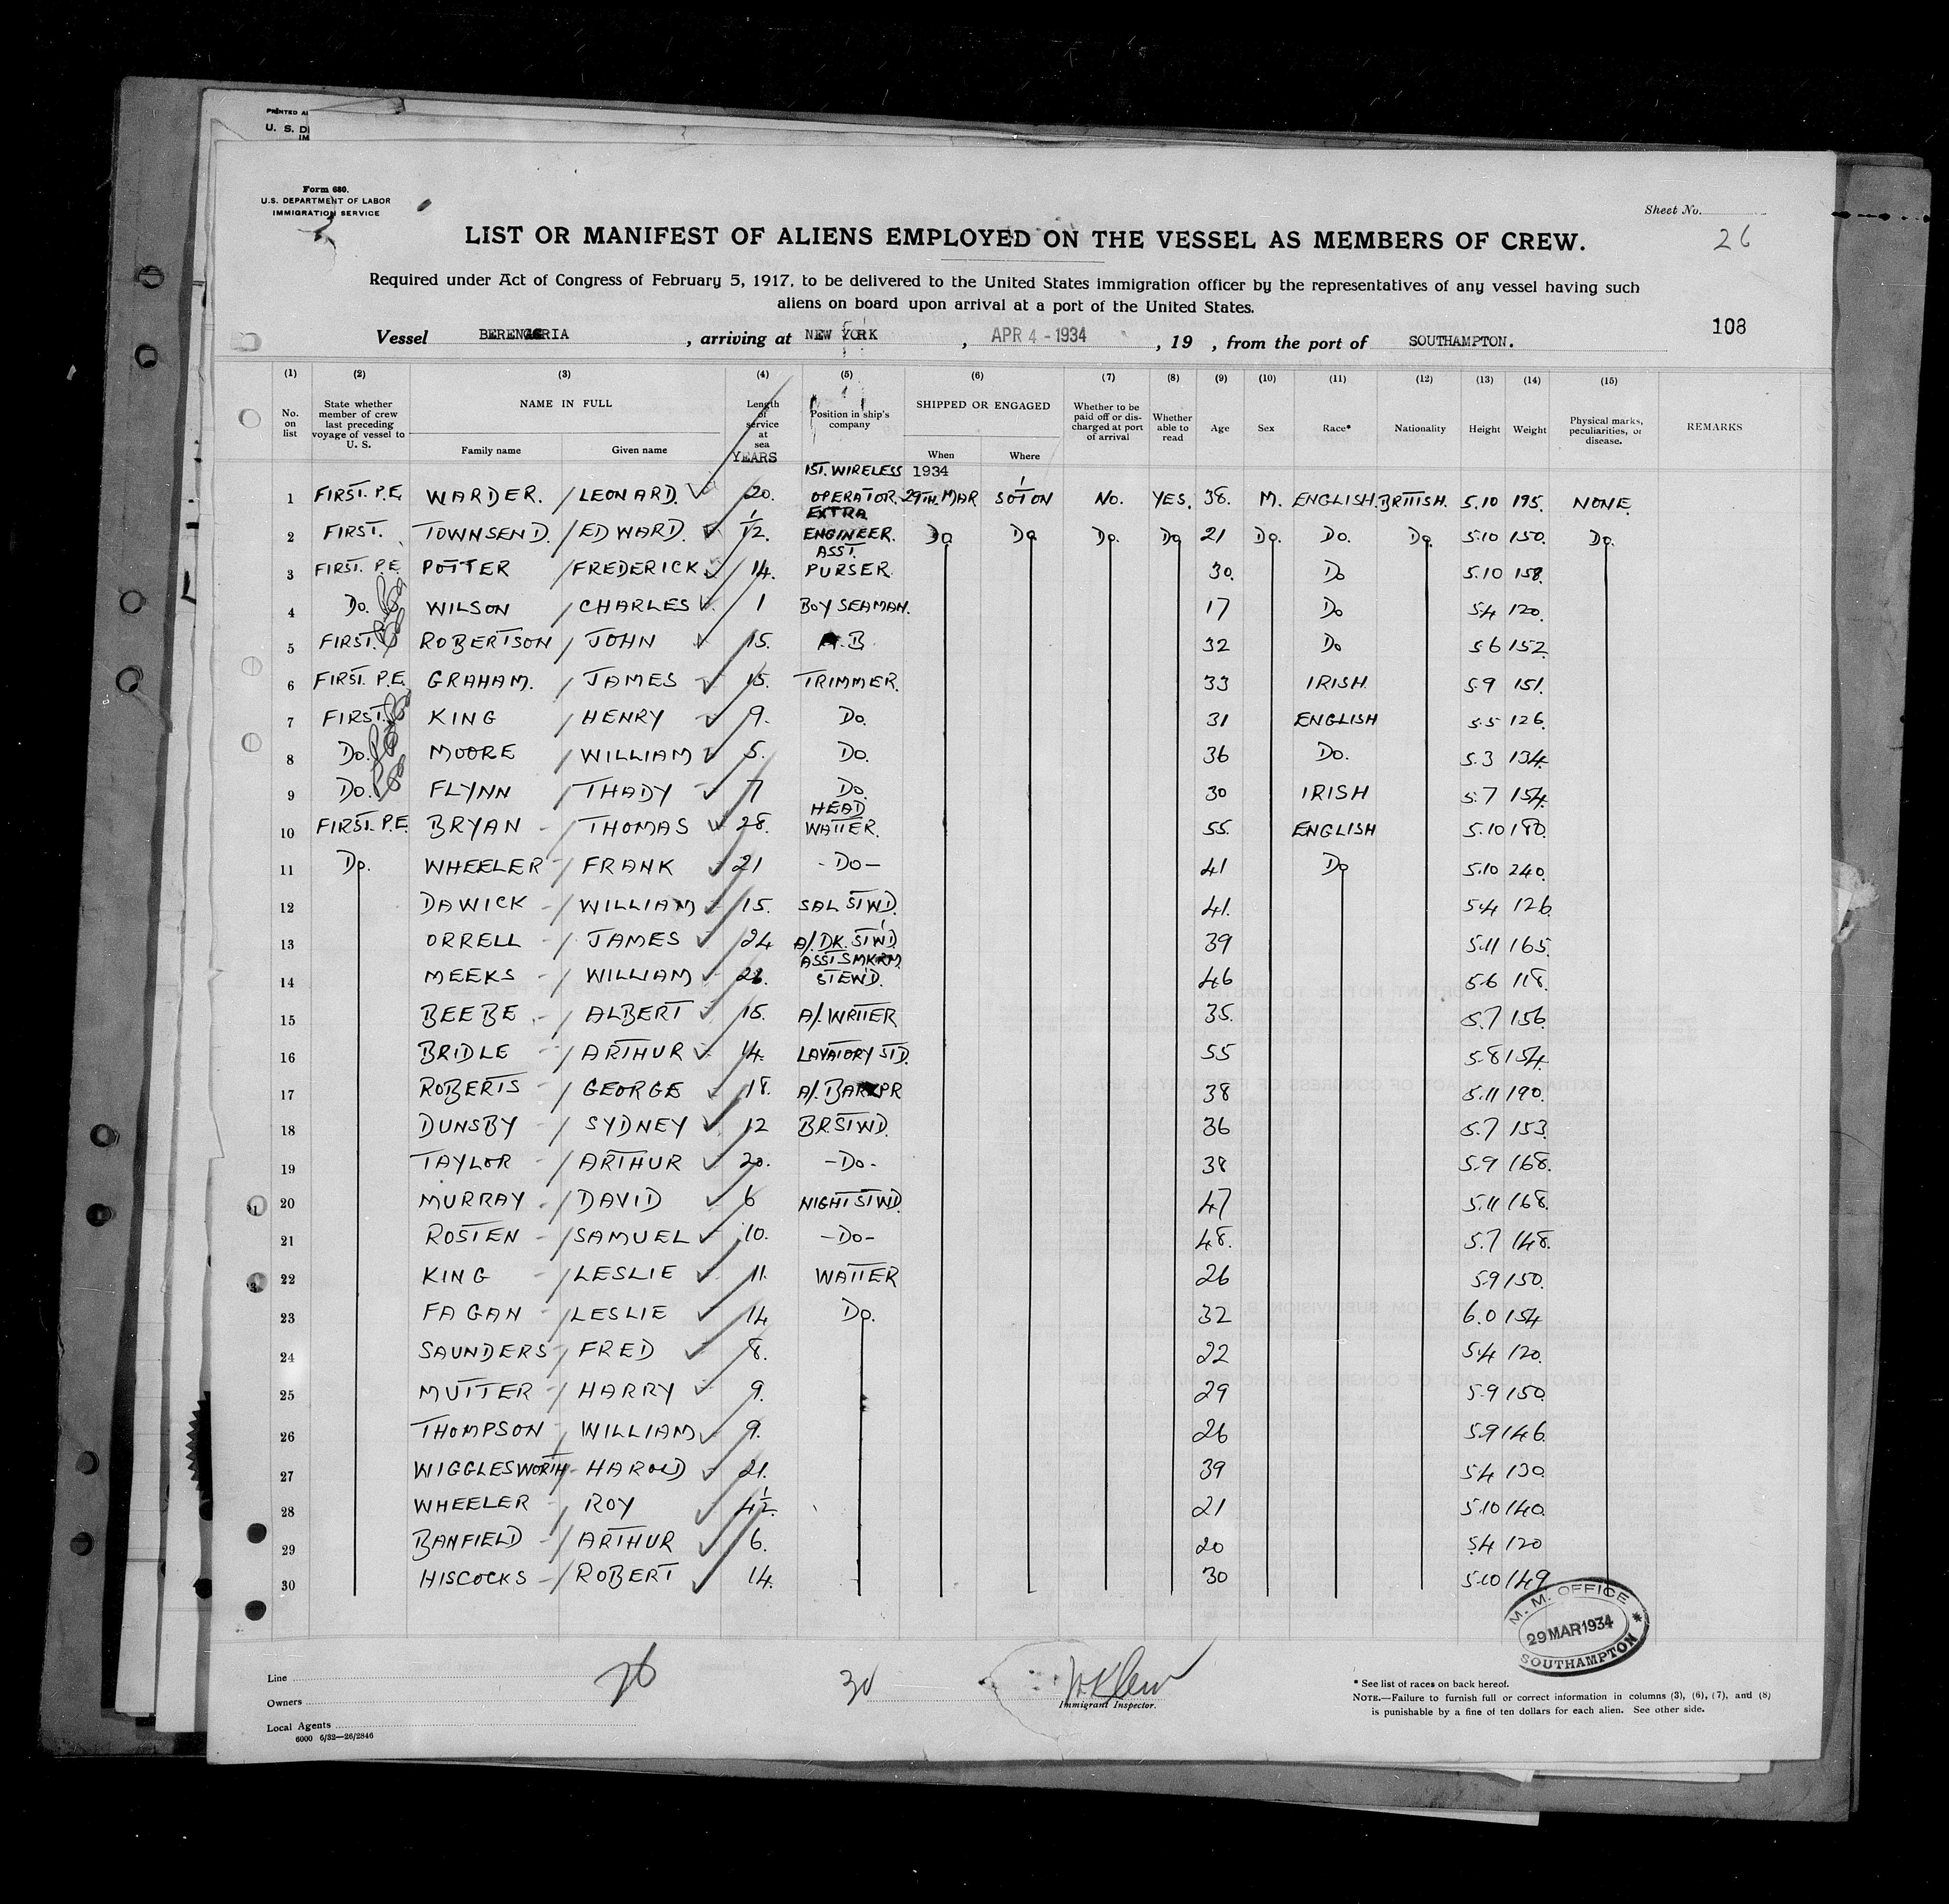 PRINTED A
U. S. D
IM
Form 680.
U.S. DEPARTMENT OF LABOR
IMMIGRATION SERVICE
Sheet No.
26
LIST OR MANIFEST OF ALIENS EMPLOYED ON THE VESSEL AS MEMBERS OF CREW.
Required under Act of Congress of February 5, 1917, to be delivered to the United States immigration officer by the representatives of any vessel having such
aliens on board upon arrival at a port of the United States.
108
Vessel BERENGARIA , arriving at NEW YORK , APR 4 - 1934 , 19 , from the port of SOUTHAMPTON.
(1) (2) (3) (4) (5) (6) (7) (8) (9) (10) (11) (12) (13) (14) (15)
No. on list State whether member of crew last preceding voyage of vessel to U. S. NAME IN FULL Family name Given name Length of service at sea YEARS Position in ship's company SHIPPED OR ENGAGED When Where Whether to be paid off or discharged at port of arrival Whether able to read Age Sex Race* Nationality Height Weight Physical marks, peculiarities, or disease. REMARKS
1 FIRST. P.E. WARDER. / LEONARD. 20. 1ST. WIRELESS OPERATOR 1934 29TH. MAR SOTON No. YES. 38. M. ENGLISH. BRITISH. 5.10 195. NONE.
2 FIRST. TOWNSEND. / EDWARD. 1/12. EXTRA ENGINEER. Do Do Do. Do 21 Do. Do. Do. 5.10 150. Do.
3 FIRST. P.E. POTTER / FREDERICK 14. ASST. PURSER. 30. Do 5.10 158.
4 Do. WILSON / CHARLES 1 BOY SEAMAN. 17 Do 5.4 120.
5 FIRST. ROBERTSON / JOHN 15. A.B 32 Do 5.6 152
6 FIRST. P.E. GRAHAM. / JAMES 15. TRIMMER. 33 IRISH 5.9 151.
7 FIRST. KING / HENRY 9. Do. 31 ENGLISH 5.5 126.
8 Do. MOORE / WILLIAM 5. Do. 36 Do. 5.3 134.
9 Do. FLYNN / THADY 7 Do. 30 IRISH 5.7 154.
10 FIRST. P.E. BRYAN - / THOMAS 28. HEAD WAITER. 55. ENGLISH 5.10 180.
11 Do. WHEELER - / FRANK 21 - Do - 41 Do 5.10 240.
12 DAWICK - / WILLIAM 15. SAL STWD. 41. 5.4 126.
13 ORRELL - / JAMES 24 A/. DK. STWD. 39 5.11 165.
14 MEEKS - / WILLIAM ASST SMKRM STEWD. 46 5.6 118.
15 BEEBE - / ALBERT 15. A/. WRITER 35. 5.7 156.
16 BRIDLE - / ARTHUR 14. LAVATORY STD. 55 5.8 154.
17 ROBERTS - / GEORGE 18. A/. BARKPR 38 5.11 190.
18 DUNSBY - / SYDNEY 12 BR.STWD. 36 5.7 153.
19 TAYLOR - / ARTHUR 20. - Do - 38 5.9 168.
20 MURRAY - / DAVID 6 NIGHT STWD. 47 5.11 168.
21 ROSTEN - / SAMUEL 10. - Do - 48. 5.7 148.
22 KING - / LESLIE 11. WAITER 26 5.9 150.
23 FAGAN - / LESLIE 14 Do. 32 6.0 154
24 SAUNDERS / FRED 8. 22 5.4 120.
25 MUTTER - / HARRY 9. 29 5.9 150.
26 THOMPSON / WILLIAM 9. 26 5.9 146.
27 WIGGLESWORTH - HAROLD 21. 39 5.4 130.
28 WHEELER - / ROY 4 1/2. 21 5.10 140.
29 BANFIELD - / ARTHUR 6. 20 5.4 120
30 HISCOCKS - / ROBERT 14. 30 5.10 149
M. M. OFFICE
29 MAR 1934
SOUTHAMPTON
Line
Owners
Local Agents
6000 6/32—26/2846
30
Immigrant Inspector.
* See list of races on back hereof.
NOTE.—Failure to furnish full or correct information in columns (3), (6), (7), and (8)
is punishable by a fine of ten dollars for each alien. See other side.